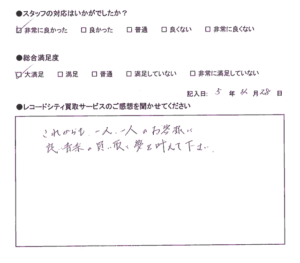 ●スタッフの対応はいかがでしたか？
☑ 非常に良かった □ 良かった □ 普通 □ 良くない □ 非常に良くない
●総合満足度
☑ 大満足 □ 満足 □ 普通 □ 満足していない □ 非常に満足していない
記入日： 5 年 月 28 日
●レコードシティ買取サービスのご感想を聞かせてください
これからも、一人、一人のお客様に
夢を叶えて下さい。